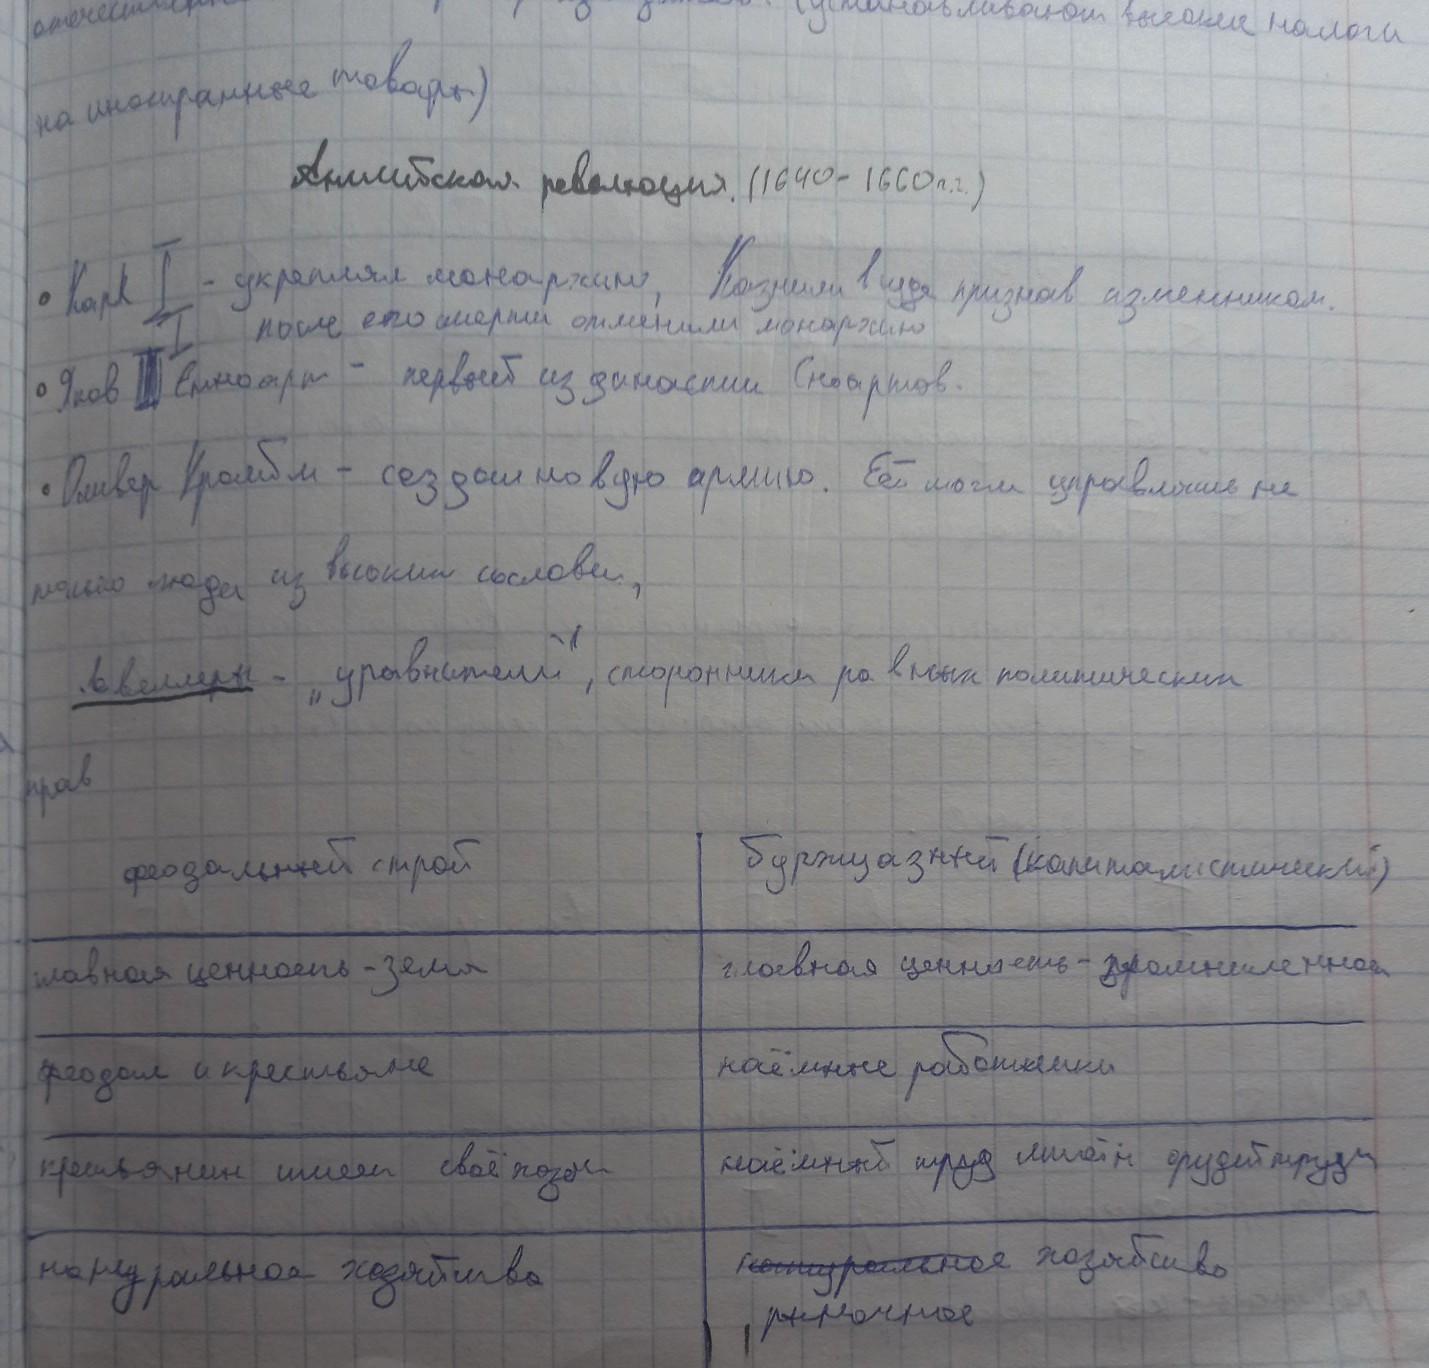 (устанавливают высокие налоги
на иностранные товары)
Английская революция. (1640-1660г.г.)
• Карл I - укреплял монархию, Казнили признав изменником.
после его смерти отменили монархию
• Яков I Стюарт - первый из династии Стюартов.
• Оливер Кромбл - создал новую армию. Ей могли управлять не
только люди из высоких сословий,
Левеллеры - „уравнители", сторонники равных политических
прав
феодальный строй
буржуазный (капиталистический)
главная ценность - земля
главная ценность - промышленное
феодал и крестьяне
наёмные работники
крестьянин имеет своё хоз-
наёмный труд лишён орудий труда
натуральное хозяйство
натуральное хозяйство
рыночное